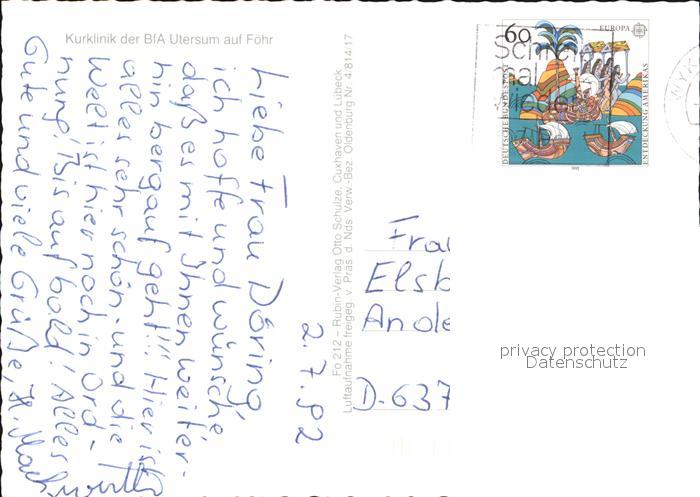 Kurklinik der BfA Utersum auf Föhr
2.7.92
Liebe Frau Döring,
ich hoffe und wünsche,
daß es mit Ihnen weiter-
hin bergauf geht!!! Hier ist
alles sehr schön - und die
Welt ist hier noch in Ord-
nung! Bis auf bald! Alles
Gute und viele Grüße, H.
Fo 212 – Rubin-Verlag Otto Schulze, Cuxhaven und Lübeck
Luftaufnahme freigeg. v. Präs. d. Nds. Verw.-Bez. Oldenburg Nr. 4/814/17
60
EUROPA
DEUTSCHE BUNDESPOST
ENTDECKUNG AMERIKAS
1992
Schrei
mal
wieder
WYK
Frau
Elsb
D-637
privacy protection
Datenschutz